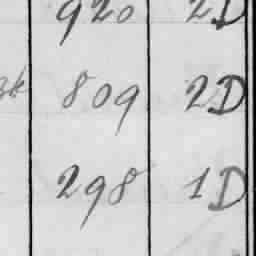 920 2D
809 2D
298 1D